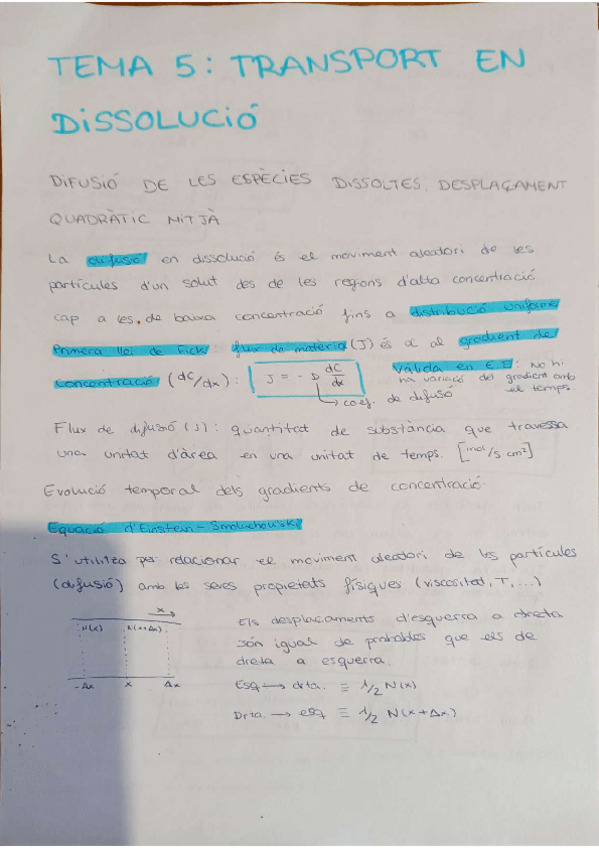 TEMA 5: TRANSPORT EN
DISSOLUCIÓ
DIFUSIÓ DE LES ESPÈCIES DISSOLTES. DESPLAÇAMENT
QUADRÀTIC MITJÀ
La difusió en dissolució és el moviment aleatori de les
partícules d'un solut des de les regions d'alta concentració
cap a les de baixa concentració fins a distribució uniforme
Primera llei de Fick: flux de matèria (J) és α al gradient de
concentració (dC/dx): J = - D dC/dx
Vàlida en E.E: No hi
ha variació del gradient amb
el temps.
coef. de difusió
Flux de difusió (J): quantitat de substància que travessa
una unitat d'àrea en una unitat de temps. [mol/s cm²]
Evolució temporal dels gradients de concentració
Equació d'Einstein-Smoluchowski
S'utilitza per relacionar el moviment aleatori de les partícules
(difusió) amb les seves propietats físiques (viscositat, T, ...)
x
N(x) N(x+Δx)
-Δx x Δx
Els desplaçaments d'esquerra a dreta
són igual de probables que els de
dreta a esquerra.
Esq → drta. ≡ 1/2 N(x)
Drta. → esq ≡ 1/2 N(x+Δx)